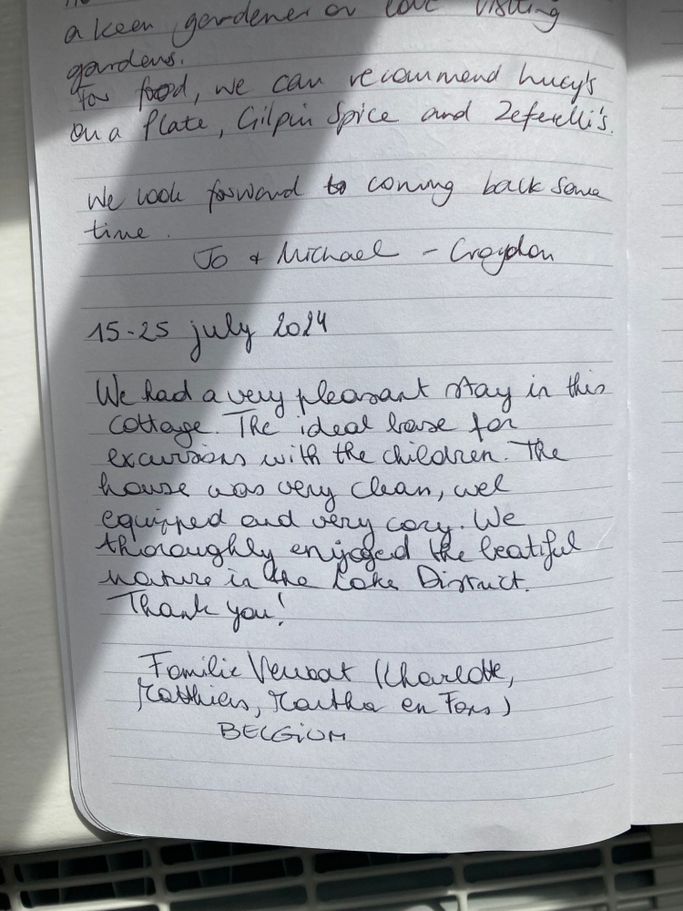 a keen gardener or love visiting
gardens.
For food, we can recommend Lucy's
on a Plate, Gilpin Spice and Zeferelli's.
We look forward to coming back some
time.
Jo + Michael - Croydon
15-25 july 2024
We had a very pleasant stay in this
cottage. The ideal base for
excursions with the children. The
house was very clean, wel
equipped and very cozy. We
thoroughly enjoyed the beatiful
nature in the Lake District.
Thank you!
Familie (Charlotte,
Matthias, Martha en Fons)
BELGIUM